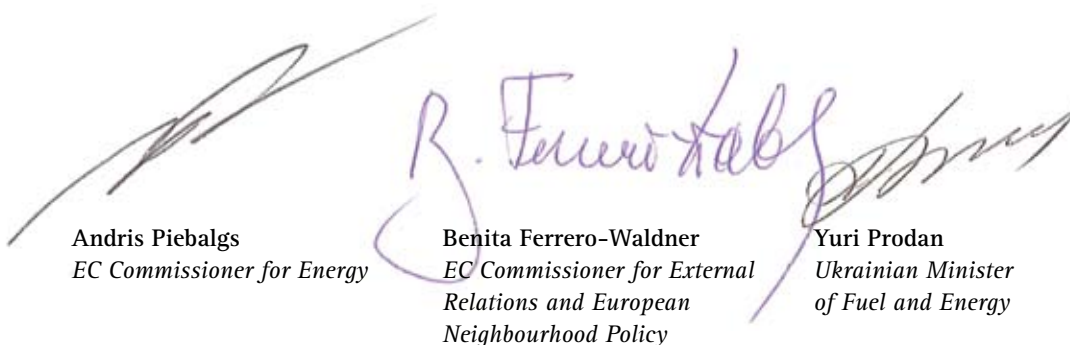 Andris Piebalgs
EC Commissioner for Energy
Benita Ferrero-Waldner
EC Commissioner for External
Relations and European
Neighbourhood Policy
Yuri Prodan
Ukrainian Minister
of Fuel and Energy